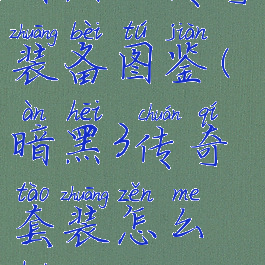 zhuāng bèi tú jiàn
装备图鉴(
àn hēi chuán qí
暗黑3传奇
tào zhuāng zěn me
套装怎么